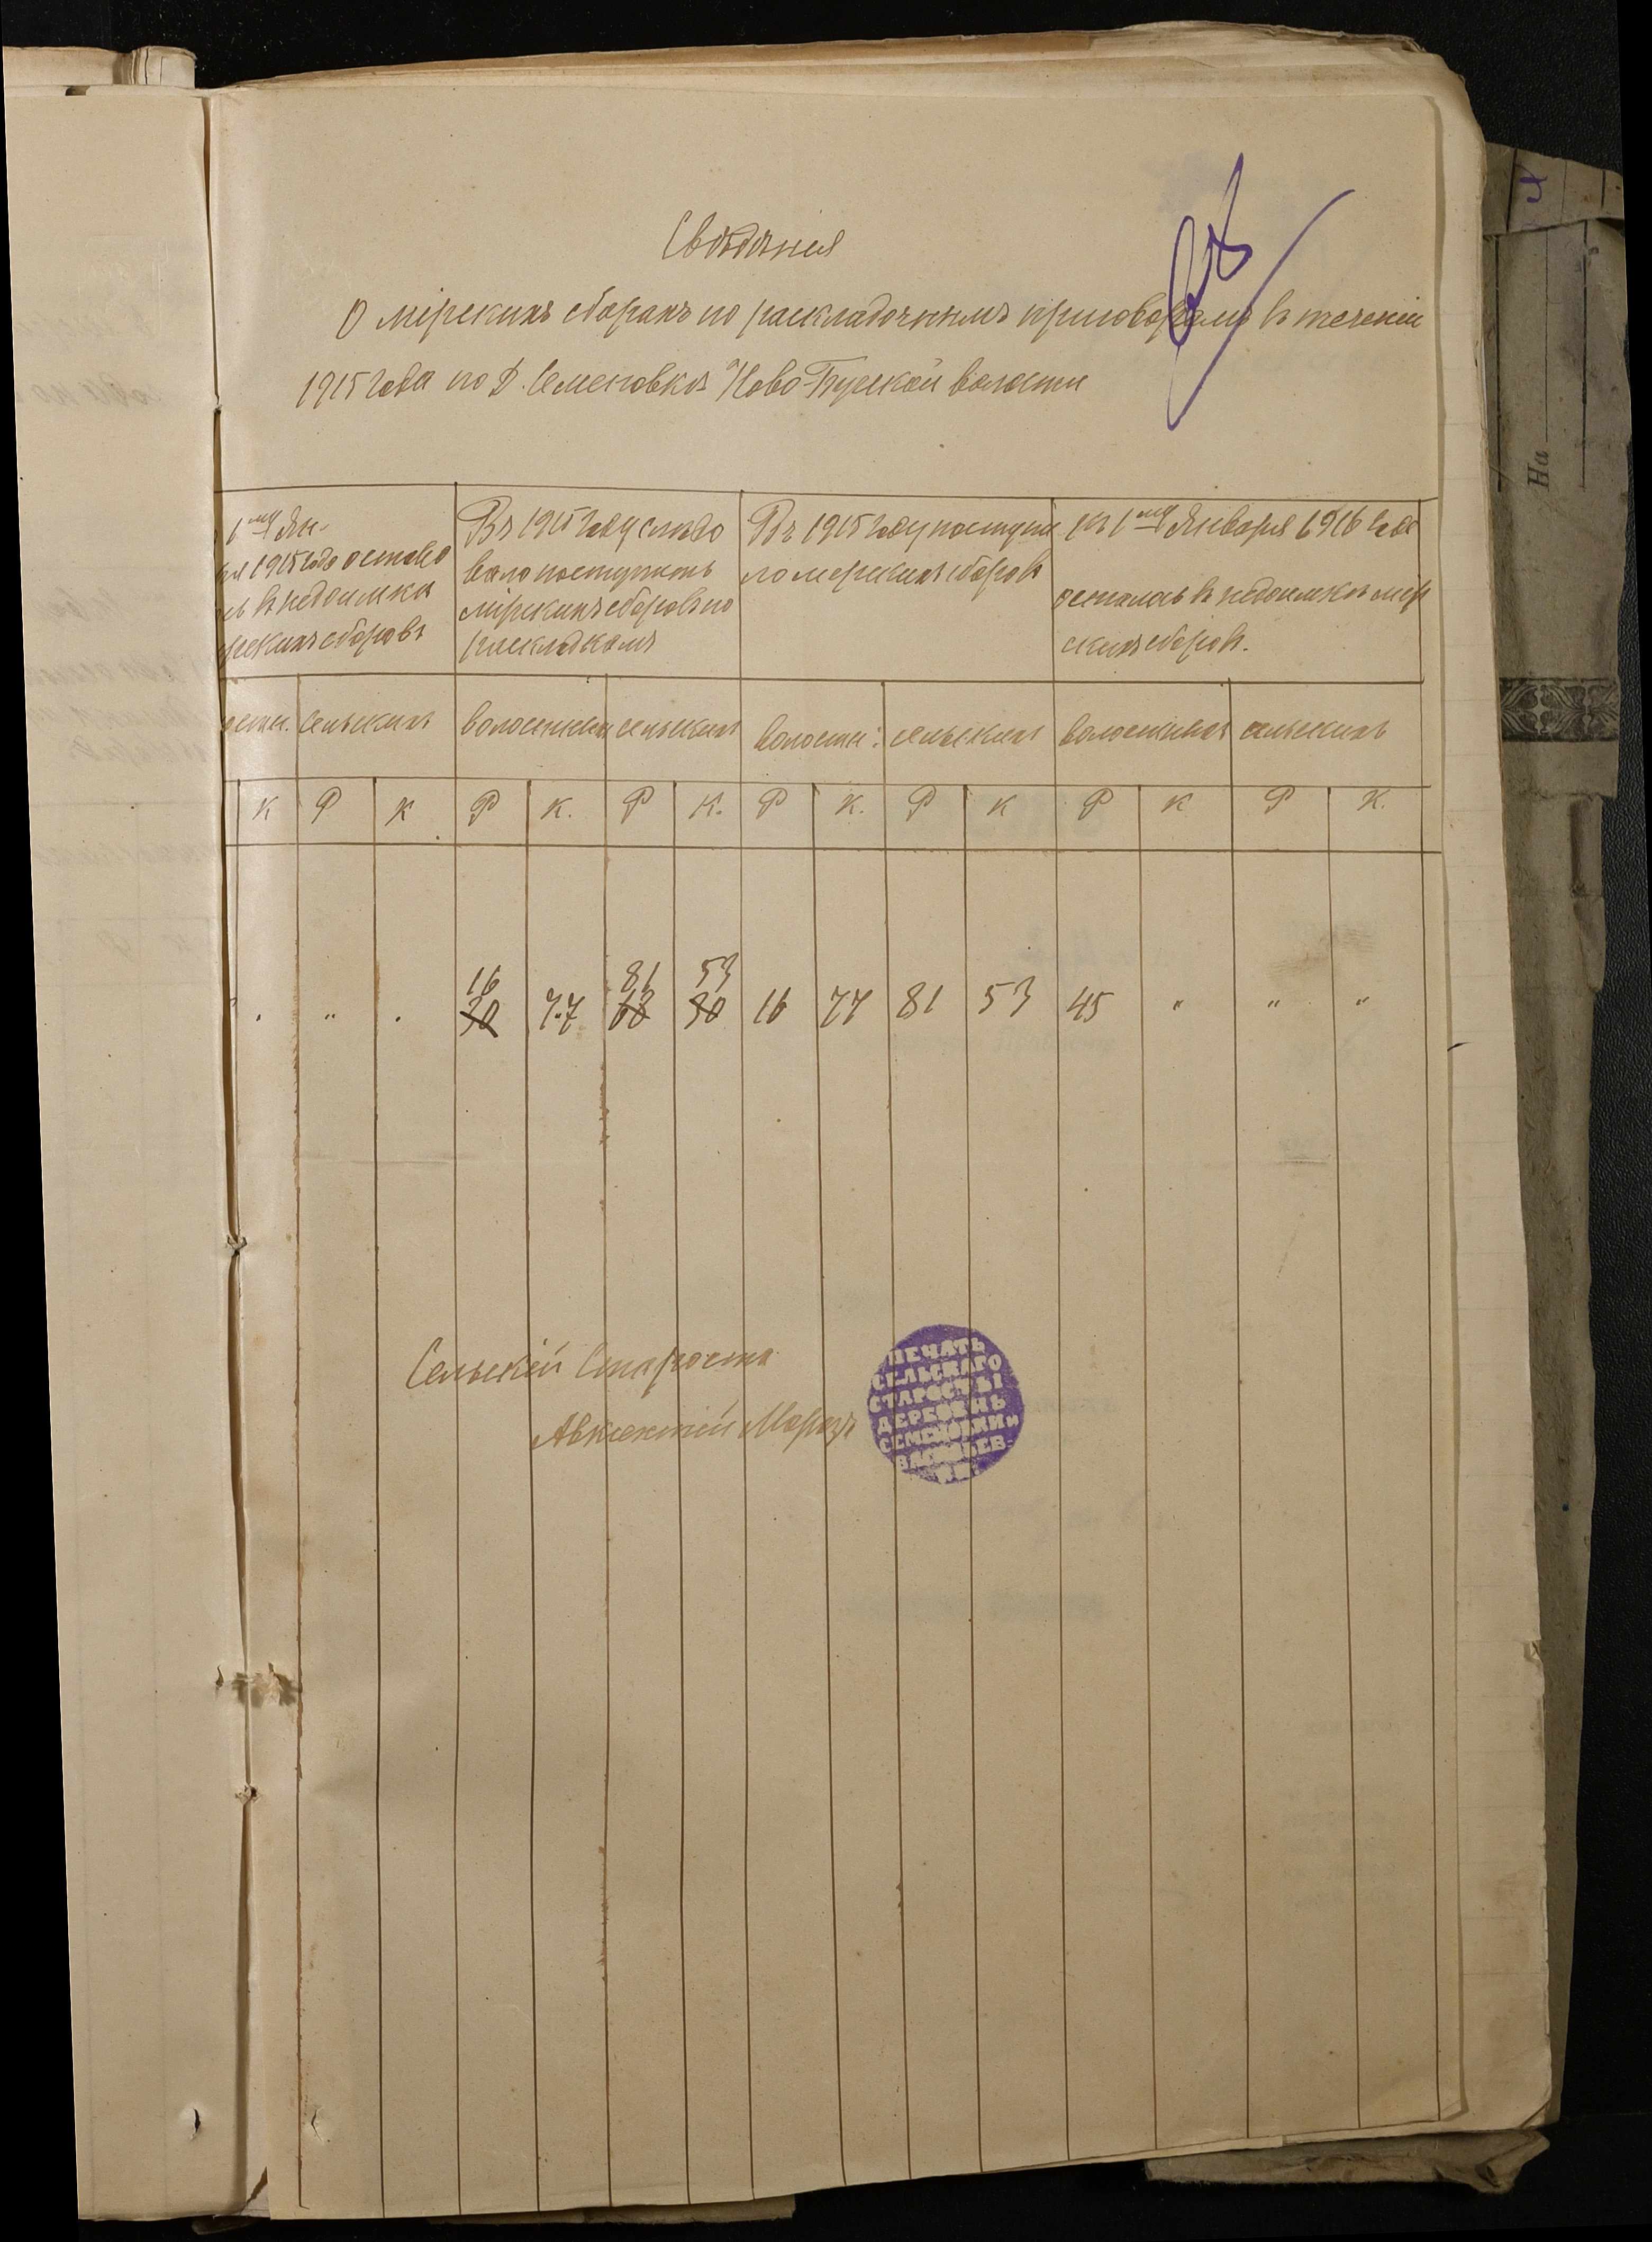 Свѣдѣнія
О мірскихъ сборахъ по раскладочнымъ приговорамъ въ теченіи
1915 года по Д. Семеновкѣ Ново-Бугской волости
1му Ян-
ря 1915 года остава
сь въ недоимкѣ
рскихъ сборовъ
Въ 1915 году слѣдо
вало поступить
мірскихъ сборовъ по
раскладкамъ
Въ 1915 году поступи
ло мерскихъ сборовъ
Къ 1му Января 1916 года
осталось въ недоимкѣ мир
скихъ сборовъ.
остн. сельскихъ волостныхъ сельскихъ волостн: сельскихъ волостныхъ сельскихъ
К Р К Р К. Р К. Р К. Р К Р К Р К.
16 81 53
" " " 30 77 68 30 16 77 81 53 45 " " "
Сельскій Староста
Авксентій Морозъ
ПЕЧАТЬ
СЕЛЬСКАГО
СТАРОСТЫ
ДЕРЕВЕНЬ
СЕМЕНОВКИ и
ВАСИЛЬЕВ-
КИ
На